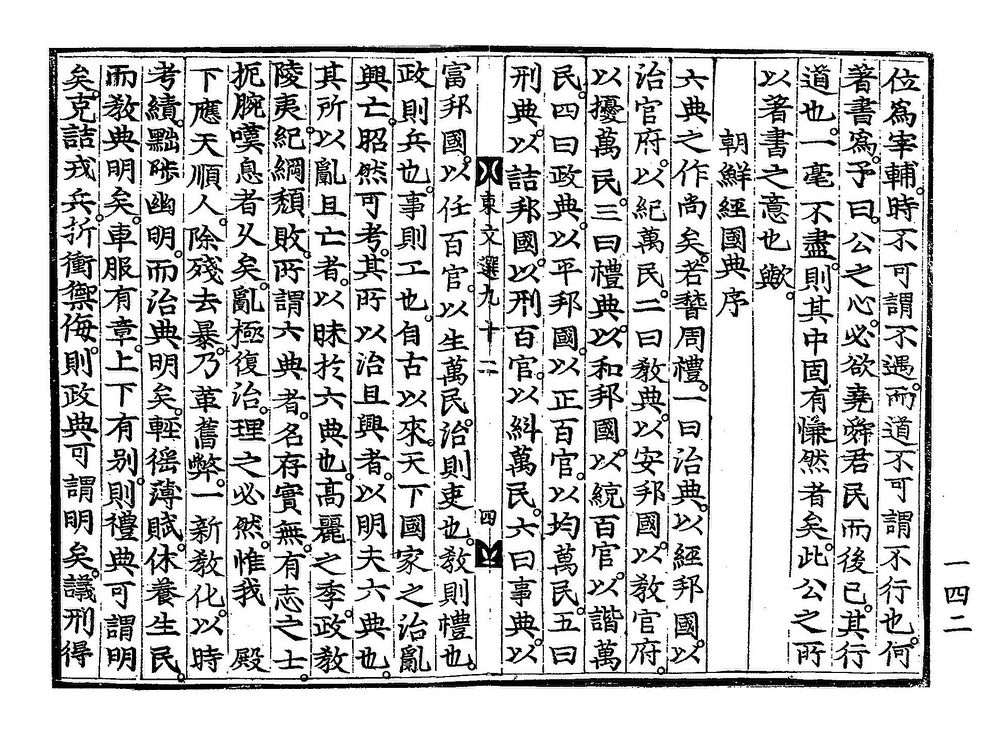 位爲宰輔。時不可謂不遇。而道不可謂不行也。何
著書爲。予曰。公之心。必欲堯舜君民而後已。其行
道也。一毫不盡。則其中固有慊然者矣。此公之所
以著書之意也歟。
朝鮮經國典序
六典之作尚矣。若稽周禮。一曰治典。以經邦國。以
治官府。以紀萬民。二曰敎典。以安邦國。以敎官府。
以擾萬民。三曰禮典。以和邦國。以統百官。以諧萬
民。四曰政典。以平邦國。以正百官。以均萬民。五曰
刑典。以詰邦國。以刑百官。以糾萬民。六曰事典。以
東文選九十二
四
富邦國。以任百官。以生萬民。治則吏也。敎則禮也。
政則兵也。事則工也。自古以來。天下國家之治亂
興亡。昭然可考。其所以治且興者。以明夫六典也。
其所以亂且亡者。以昧於六典也。高麗之季。政敎
陵夷。紀綱頹敗。所謂六典者。名存實無。有志之士。
扼腕嘆息者久矣。亂極復治。理之必然。惟我 殿
下應天順人。除殘去暴。乃革舊弊。一新敎化。以時
考績。黜陟幽明。而治典明矣。輕徭薄賦。休養生民。
而敎典明矣。車服有章。上下有別。則禮典可謂明
矣。克詰戎兵。折衝禦侮。則政典可謂明矣。議刑得
一四二